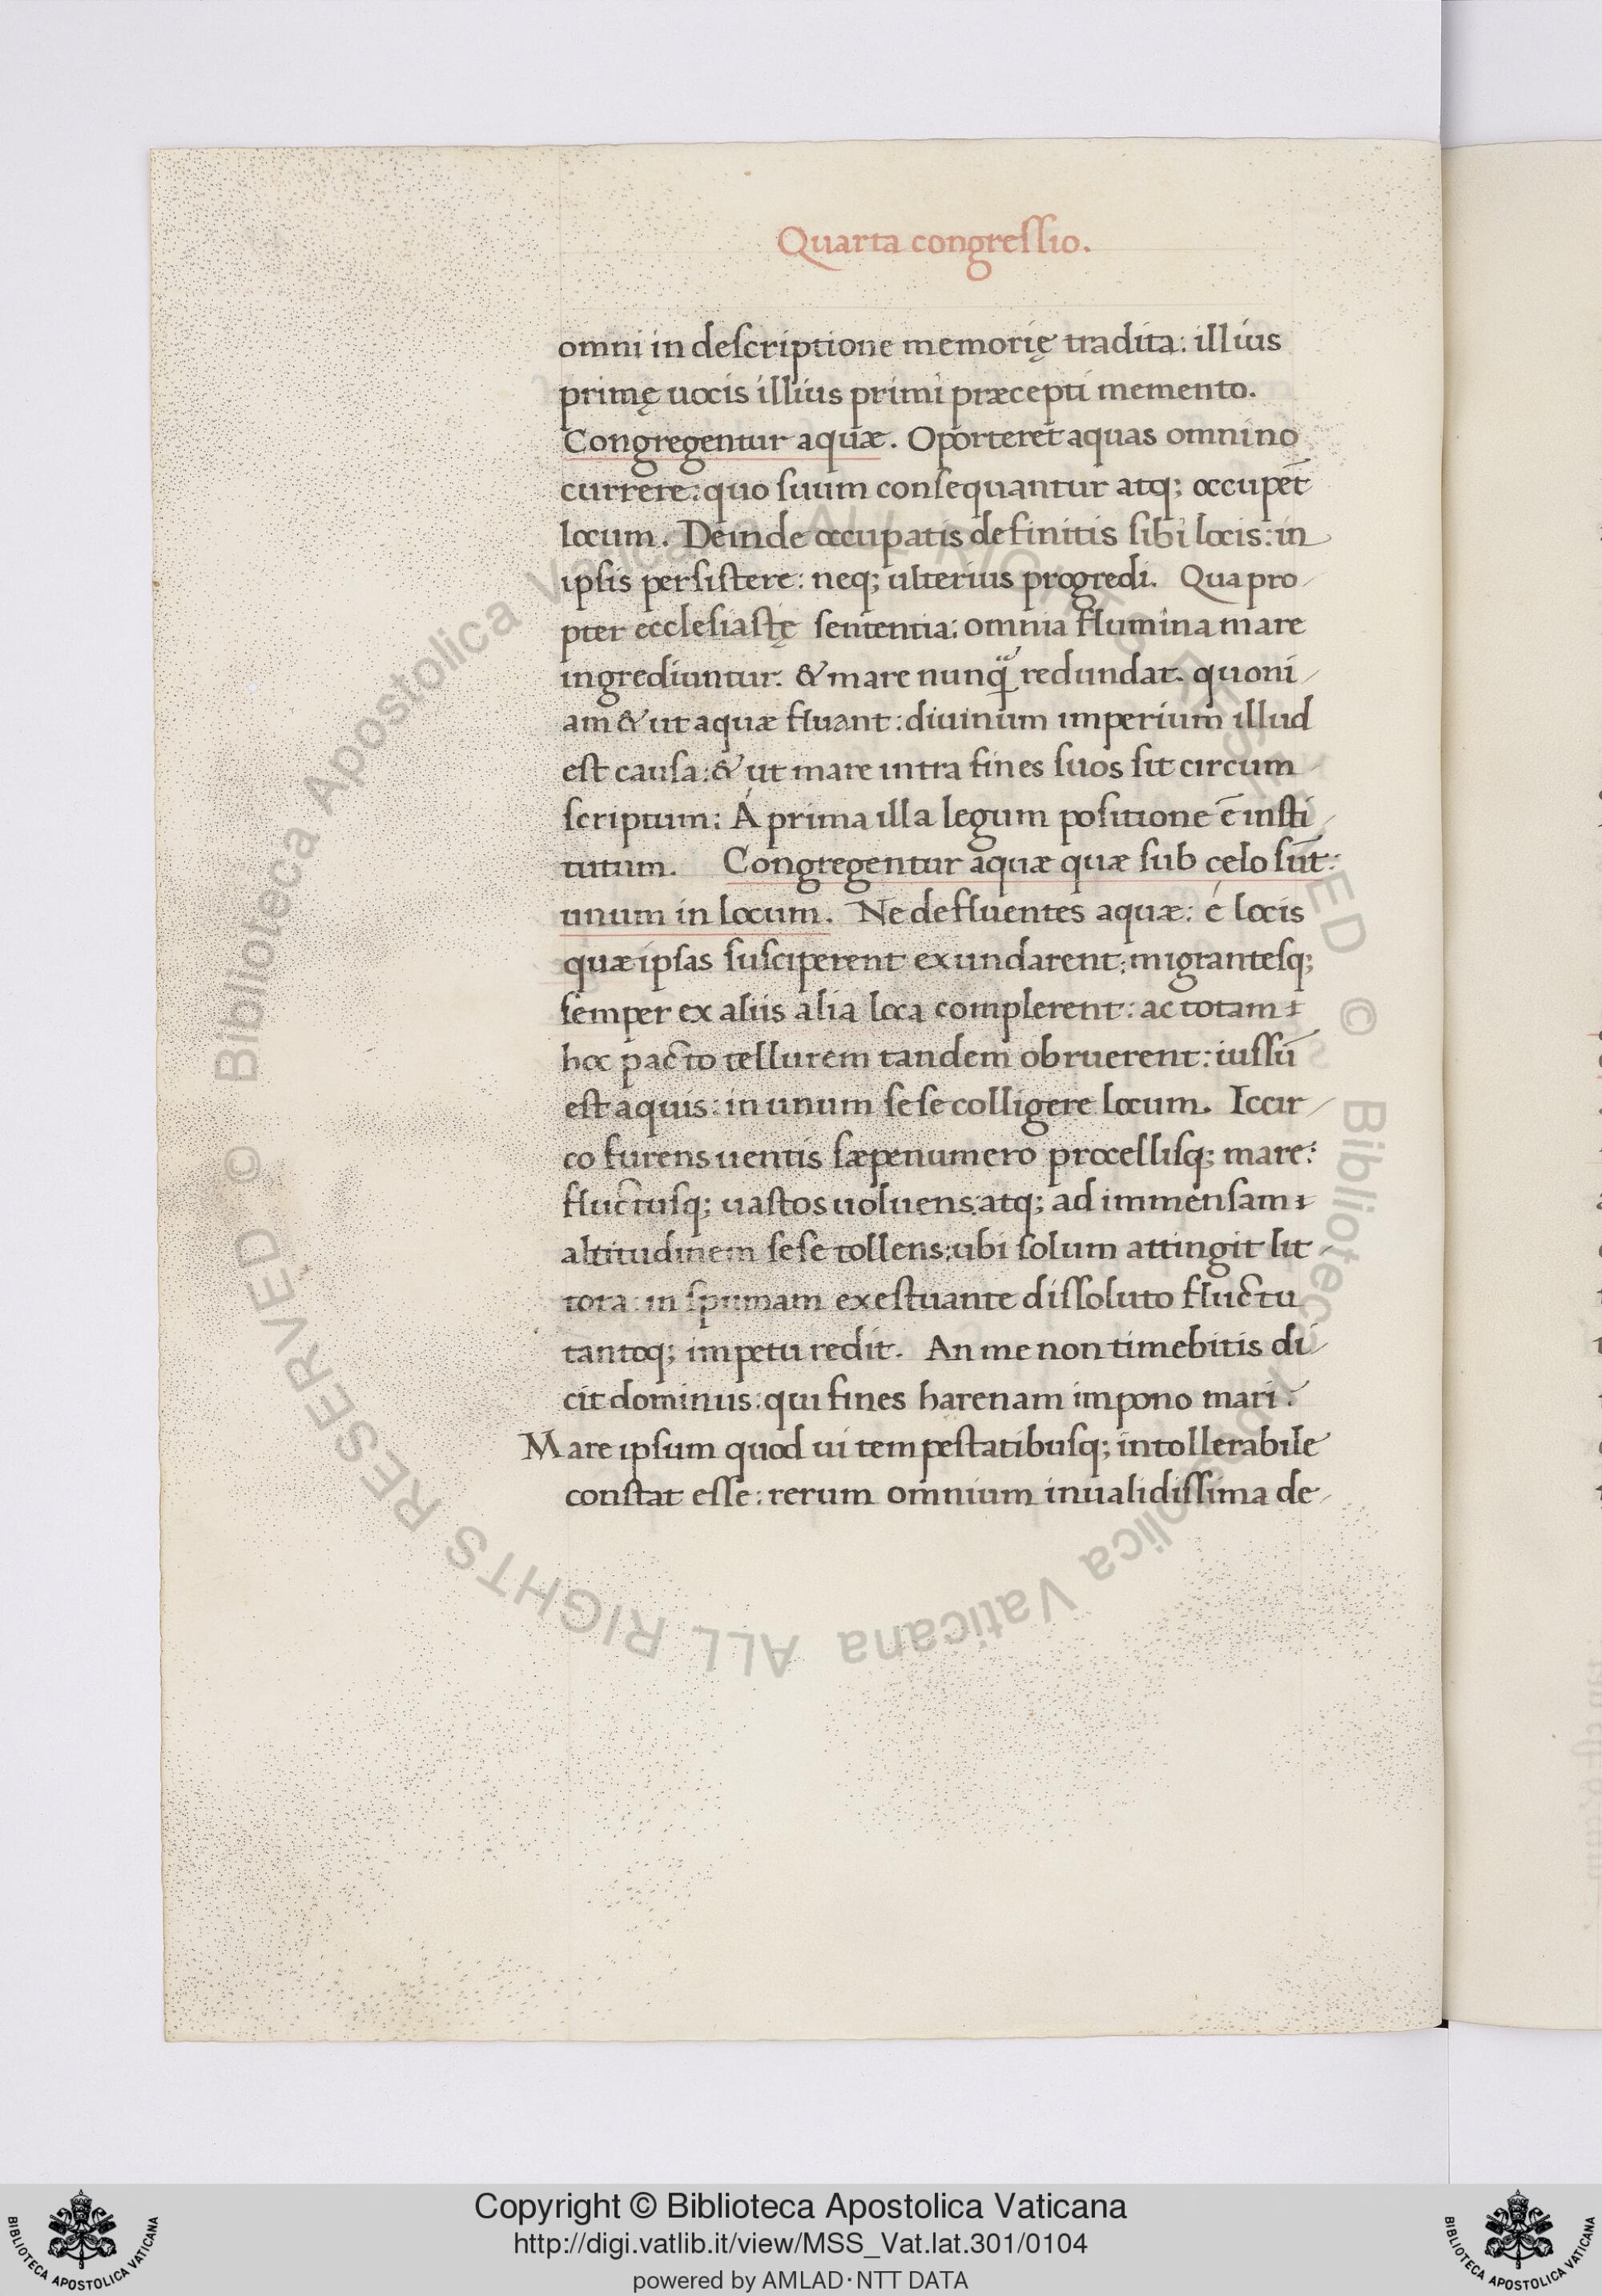 Quarta congressio.
omni in descriptione memorię tradita: illius
primę uocis illius primi præcepti memento.
Congregentur aquæ. Oporteret aquas omnino
currere: quo suum consequantur atq; occupēt
locum. Deinde occupatis definitis sibi locis: in
ipsis persistere: neq; ulterius progredi. Qua pro
pter ecclesiastę sententia: omnia flumina mare
ingrediuntur. & mare nunq̃ redundat. quoni
am & ut aquæ fluant: diuinum imperium illud
est causa: & ut mare intra fines suos sit circum
scriptum: Á prima illa legum positione ē insti
tutum. Congregentur aquæ quæ sub cęlo sūt:
unum in locum. Ne defluentes aquæ: é locis
quæ ipsas susciperent exundarent: migrantesq;
semper ex aliis alia loca complerent: ac totam
hoc pacto tellurem tandem obruerent: iussū
est aquis: in unum sese colligere locum. Iccir
co furens uentis sæpenumero procellisq; mare:
fluctusq; uastos uoluens: atq; ad immensam
altitudinem sese tollens: ubi solum attingit lit
tora: in spumam exestuante dissoluto fluctu
tantoq; impetu redit. An me non timebitis di
cit dominus: qui fines harenam impono mari:
Mare ipsum quod ui tempestatibusq; intollerabile
constat esse: rerum omnium inualidissima de
© Biblioteca Apostolica Vaticana ALL RIGHTS RESERVED © Biblioteca Apostolica Vaticana ALL RIGHTS RESERVED
Copyright © Biblioteca Apostolica Vaticana
http://digi.vatlib.it/view/MSS_Vat.lat.301/0104
powered by AMLAD·NTT DATA
BIBLIOTECA APOSTOLICA VATICANA
BIBLIOTECA APOSTOLICA VATICANA